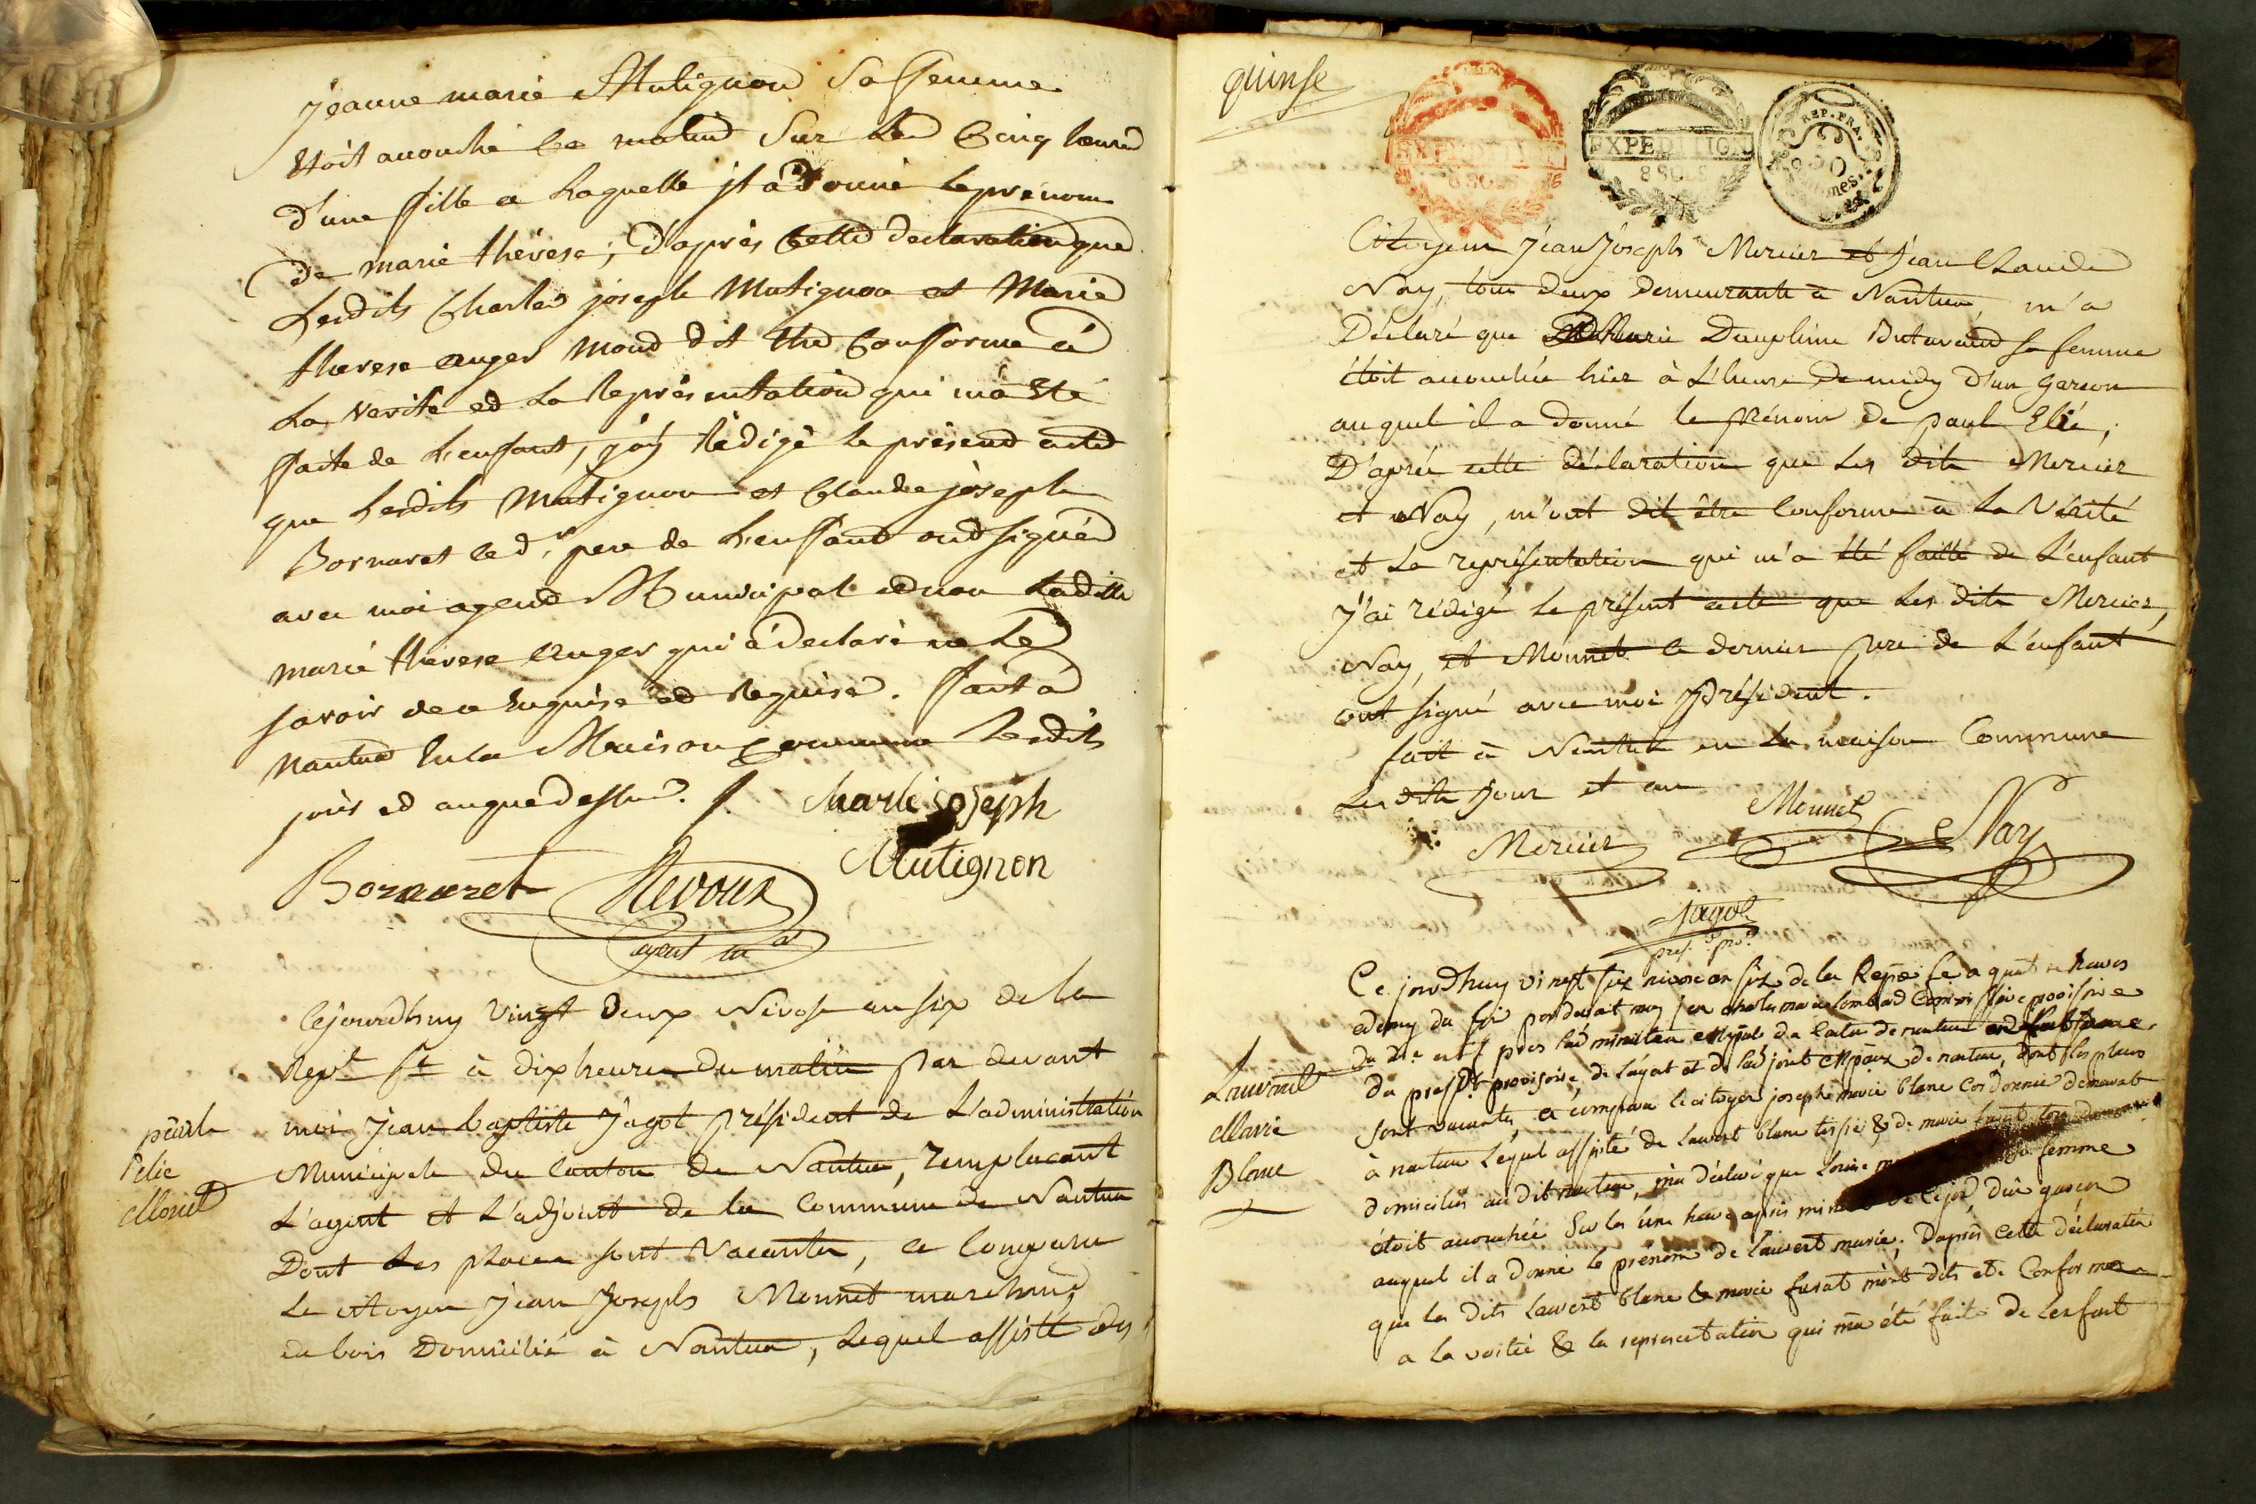 jeanne marie Mutignon Sa femme
Etoit accouché Ce matin Sur Les Cinq heures
d'une fille a Laquelle jl à donné Le prénom
de marie thérese; D'après Cette declaration que
Lesdits Charles joseph Mutignon et Marie
therese auger mond dit Etre Conforme à
La Verité ed La Représentation qui ma Eté
faite de L'enfant, j'ay Rédigé Le présend acte
que Lesdits Mutignon et Claude joseph
Bornaret Led. pere de L'enfant ond signéd
avec moi agend Municipal ed non Ladite
marie thérese auger qui à declaré ne Le
savoir de a Enquise ed Requise. fait à
Nantua En La Maison Commune Lesdits
jour ed an que dessus.
Charle joseph
Mutignon
Bornaret
Revoux
agent m.al
Cejourdhuy Vingt deux Nivose an six de la
Rep.e f.se à dix heures du matin par devant
moi Jean baptiste Jagot président de L'administration
Municipale du Canton de Nantua, remplacant
L'agent et L'adjoint de la Commune de Nantua
Dont Les places sont Vacantes, a Comparu
Le citoyen Jean Joseph Monnet marchand
en bois Domicilié à Nantua, Lequel assisté des
paul
elie
Monnet
quinse
EXPEDITION
8 SOLS
EXPEDITION
8 SOLS
REP. FRA.
50
Citoyens Jean Joseph Mercier et Jean Claude
Nay, tous deux demeurants à Nantua, m'a
Déclaré que Marie Dauphine Butavand sa femme
étoit accouchée hier à L'heure de midy d'un garcon
auquel il a donné le prénom de paul Elie;
D'après cette déclaration que Les dits Mercier
et Nay, m'ont dit être Conforme à La Vérité
et La représentation qui m'a été faitte de L'enfant
J'ai rédigé le présent acte que Les dits Mercier,
Nay, et Monnet ce dernier pere de L'enfant
ont signé avec moi Président.
fait à Nantua en La maison Commune
Les dits jour et an
Mercier
Monnet
Nay
Jagot
pres.
Ce jourdhuy vingt six nivose an six de la Rep.e f.se a quatre heures
edemy du soir pardevant moy jean charle marie Lombard Commissaire provisoire
du D.re ex.f pres l'administ.on m.pale du Canton de nantua
du presid.t provisoire, de l'agent et de l'adjoint m.paux de nantua, dont les places
sont vacantes, a comparu le citoyen joseph marie blanc Cordonnier demeurant
à nantua Lequel assisté de Laurent blanc tissier & de marie
domiciliés audit nantua, m'a déclaré que Louise femme
étoit accouchée Sur les une heure après de cejour d'un garcon
auquel il a donné le prénom de laurent marie. Daprès cette déclaration
que les dits Laurent blanc & marie furat m'ont dits etre Conformes
a la verité & la representation qui ma été faite de Lenfant
Laurent
Marie
Blanc